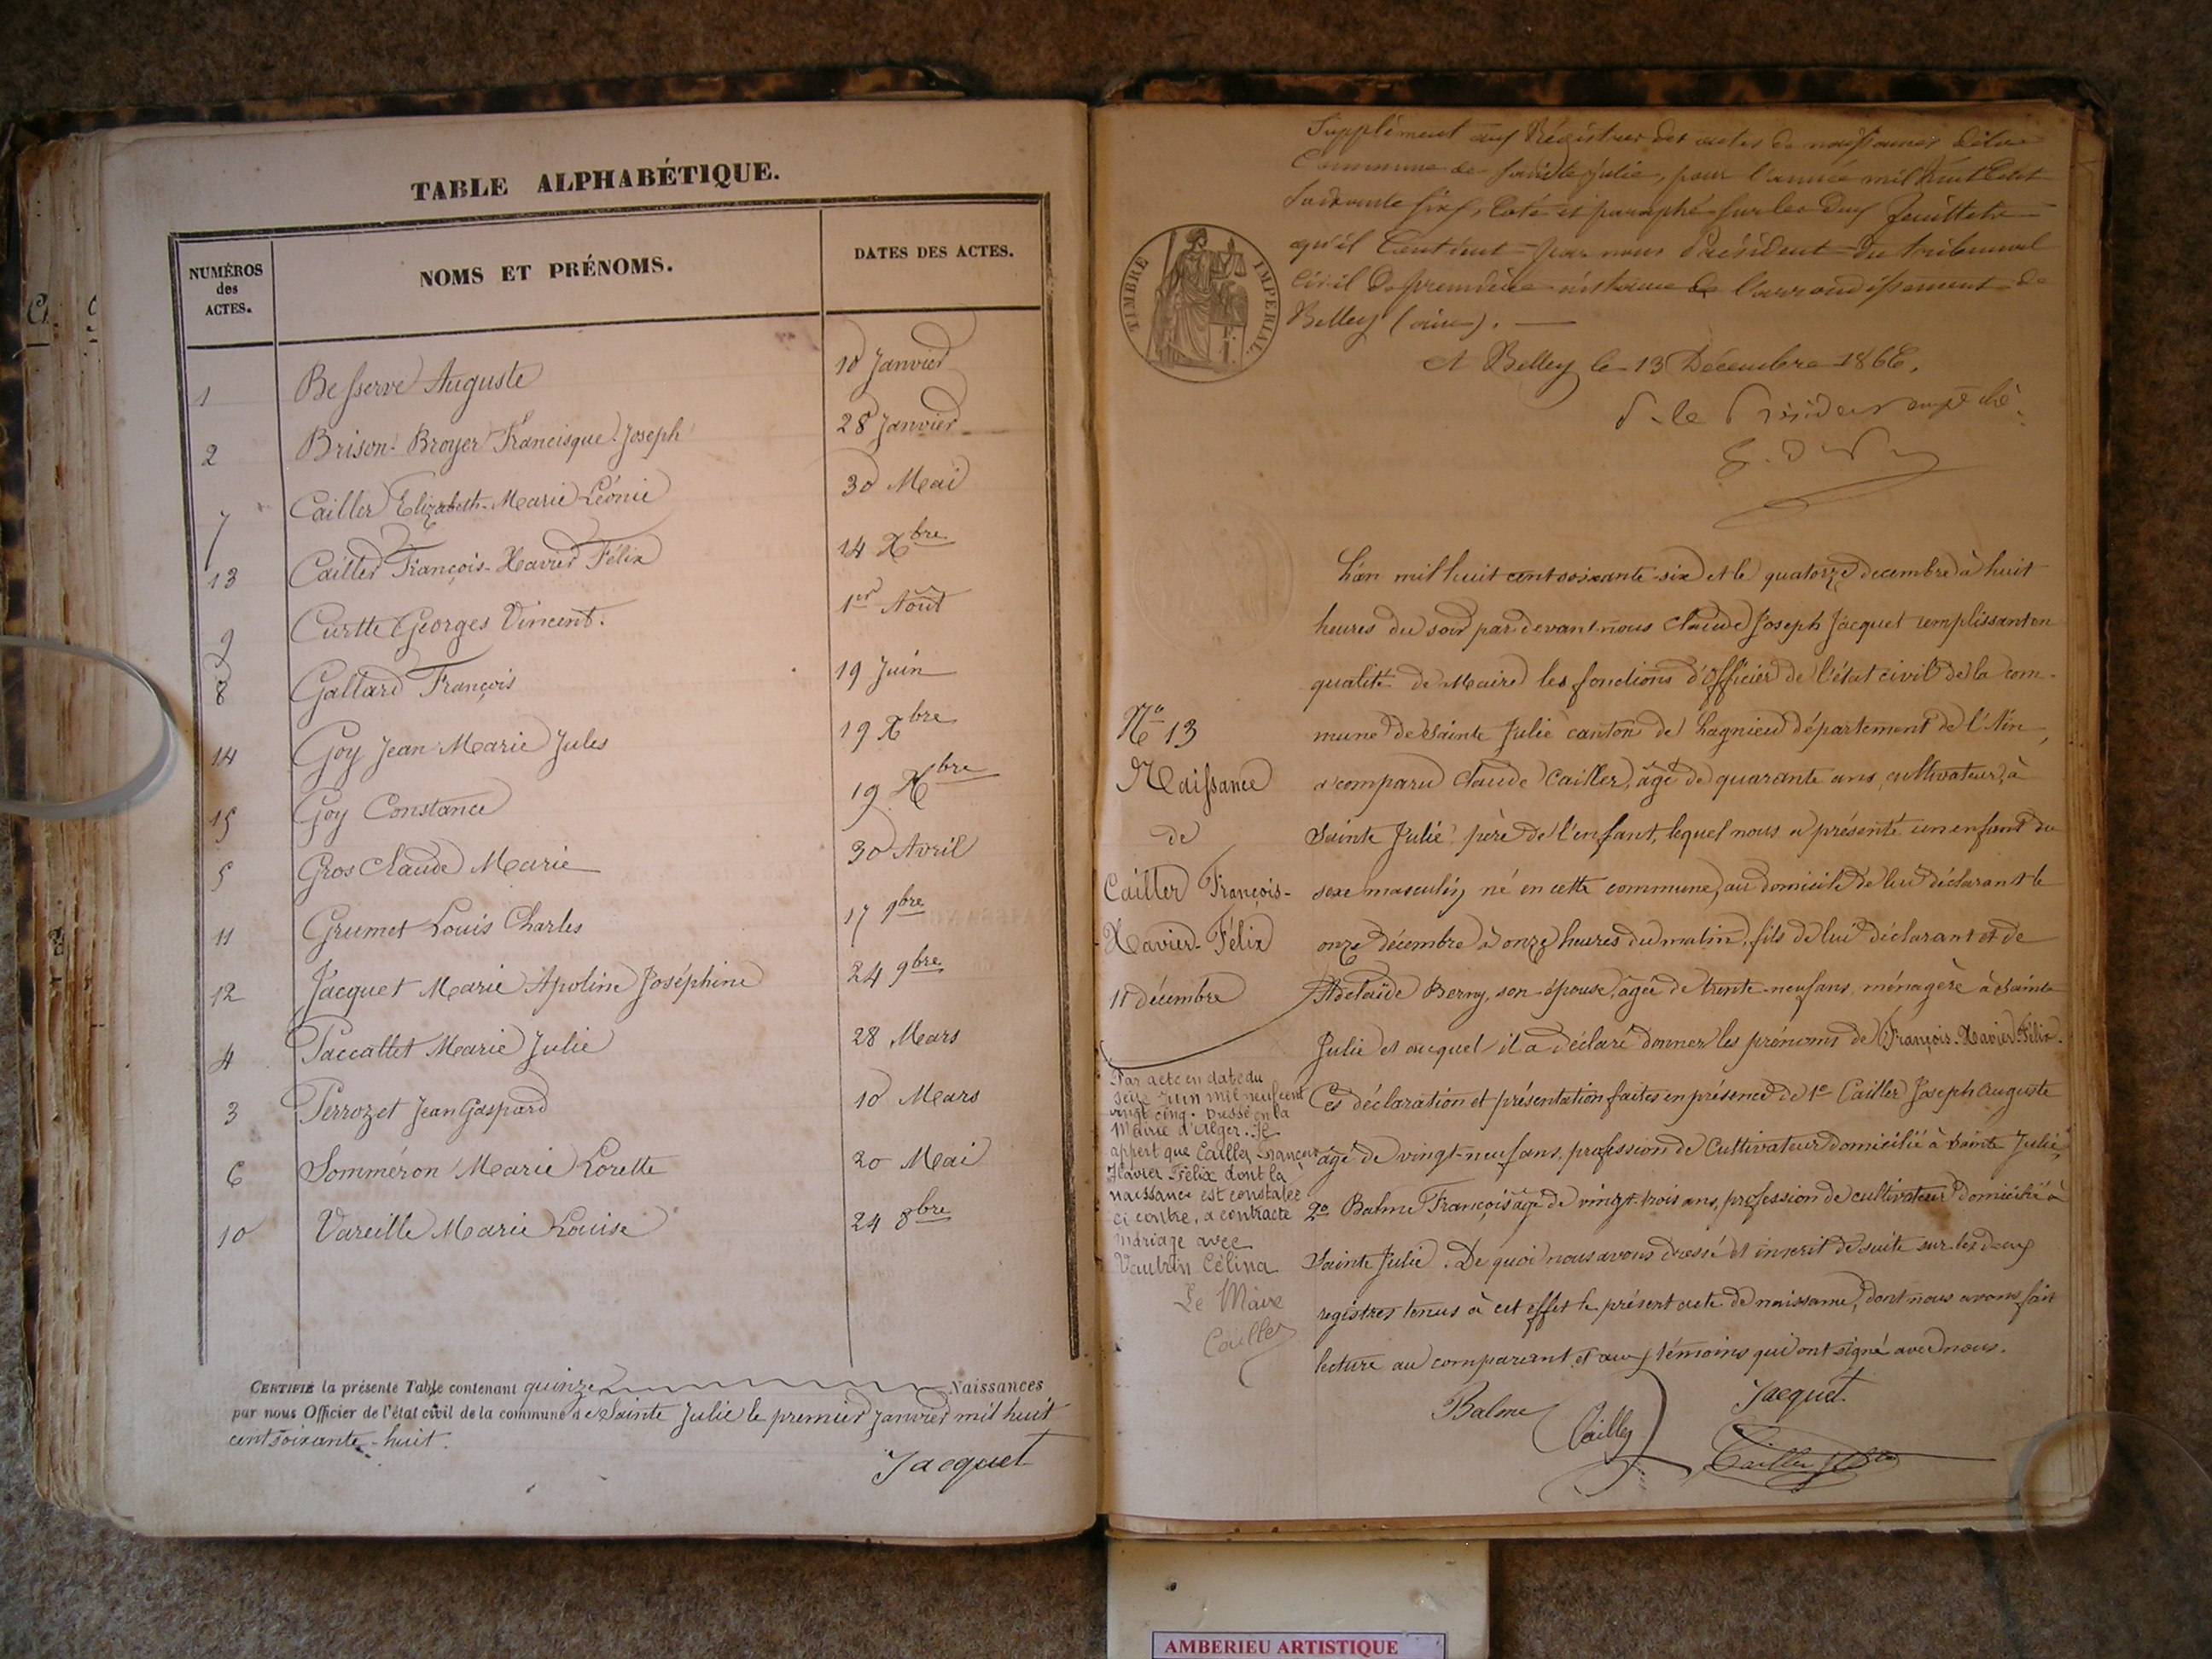 TABLE ALPHABÉTIQUE.
NUMÉROS des ACTES.
NOMS ET PRÉNOMS.
DATES DES ACTES.
1 Besserve Auguste 10 Janvier
2 Brison-Broyer Francisque-Joseph 28 Janvier
7 Cailler Elizabeth-Marie Léonie 30 Mai
13 Cailler François-Xavier Félix 14 Xbre
9 Curtte Georges Vincent. 1er Août
8 Gallard François 19 Juin
14 Goy Jean Marie Jules 19 Xbre
15 Goy Constance 19 Xbre
5 Gros Claude Marie 30 Avril
11 Grumet Louis Charles 17 9bre
12 Jacquet Marie Apoline Joséphine 24 9bre
4 Paccallet Marie Julie 28 Mars
3 Perrozet Jean Gaspard 10 Mars
6 Somméron Marie Lorette 20 Mai
10 Vareille Marie Louise 24 8bre
CERTIFIÉ la présente Table contenant quinze Naissances
par nous Officier de l'état civil de la commune de Sainte Julie le premier janvier mil huit
cent soixante-huit.
Jacquet
Supplément aux Régistres des actes de naissances de la
Commune de Sainte Julie, pour l'année mil huit Cent
Soixante Six, Coté et paraphé sur les deux feuillets
qu'il Contient par nous Président du tribunal
Civil de première instance de l'arrondissement de
Belley (ain).
TIMBRE IMPERIAL.
A Belley le 13 Décembre 1866.
P. le Président empêché
L'an mil huit cent soixante-six et le quatorze decembre à huit
heures du soir par devant nous Claude Joseph Jacquet remplissant en
qualité de Maire les fonctions d'Officier de l'état civil de la com-
mune de Sainte Julie canton de Lagnieu département de l'Ain,
a comparu Claude Cailler, âgé de quarante ans, cultivateur, à
Sainte Julie père de l'enfant, lequel nous a présenté un enfant du
sexe masculin, né en cette commune, au domicile de lui déclarant le
onze décembre à onze heures du matin, fils de lui déclarant et de
Adelaïde Berny, son épouse, âgée de trente-neuf ans, ménagère à Sainte
Julie et auquel il a déclaré donner les prénoms de François-Xavier-Félix.
Ces déclaration et présentation faites en présence de 1e Cailler Joseph Auguste
âgé de vingt-neuf ans, profession de Cultivateur domicilié à Sainte Julie,
2o Balme François âgé de vingt-trois ans, profession de cultivateur domicilié à
Sainte Julie. De quoi nous avons dressé et inscrit de suite sur les deux
registres tenus à cet effet le présent acte de naissance, dont nous avons fait
lecture au comparant et aux témoins qui ont signé avec nous.
Balme Cailler Jacquet.
Cailler
No 13
Naissance
de
Cailler François-
Xavier-Félix
11 décembre
Par acte en date du
seize Juin mil neuf cent
vingt cinq. passé en la
Mairie d'Alger. Il
appert que Cailler François
Xavier Félix dont la
naissance est constatée
ci contre, a contracté
mariage avec
Vautrin Célina
Le Maire
Cailler
AMBERIEU ARTISTIQUE